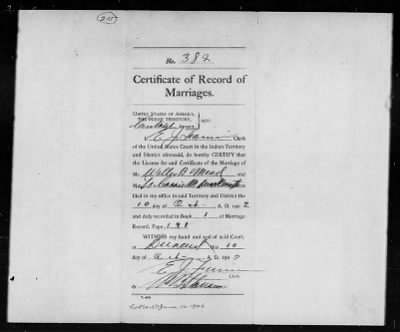 No. 382
Certificate of Record of
Marriages.
UNITED STATES OF AMERICA,
THE INDIAN TERRITORY,
E. J. Fannin Clerk
of the United States Court in the Indian Territory
and District aforesaid, do hereby CERTIFY that
the License for and Certificate of the Marriage of
Mr. Walter A. Mead and
M
filed in my office in said Territory and District the
10 day of Oct A. D. 190 2
and duly recorded in Book 1 of Marriage
Record, Page 191
WITNESS my hand and seal of said Court,
at Durant this 10
day of Oct A. D. 190 2
E. J. Fannin
Clerk
By